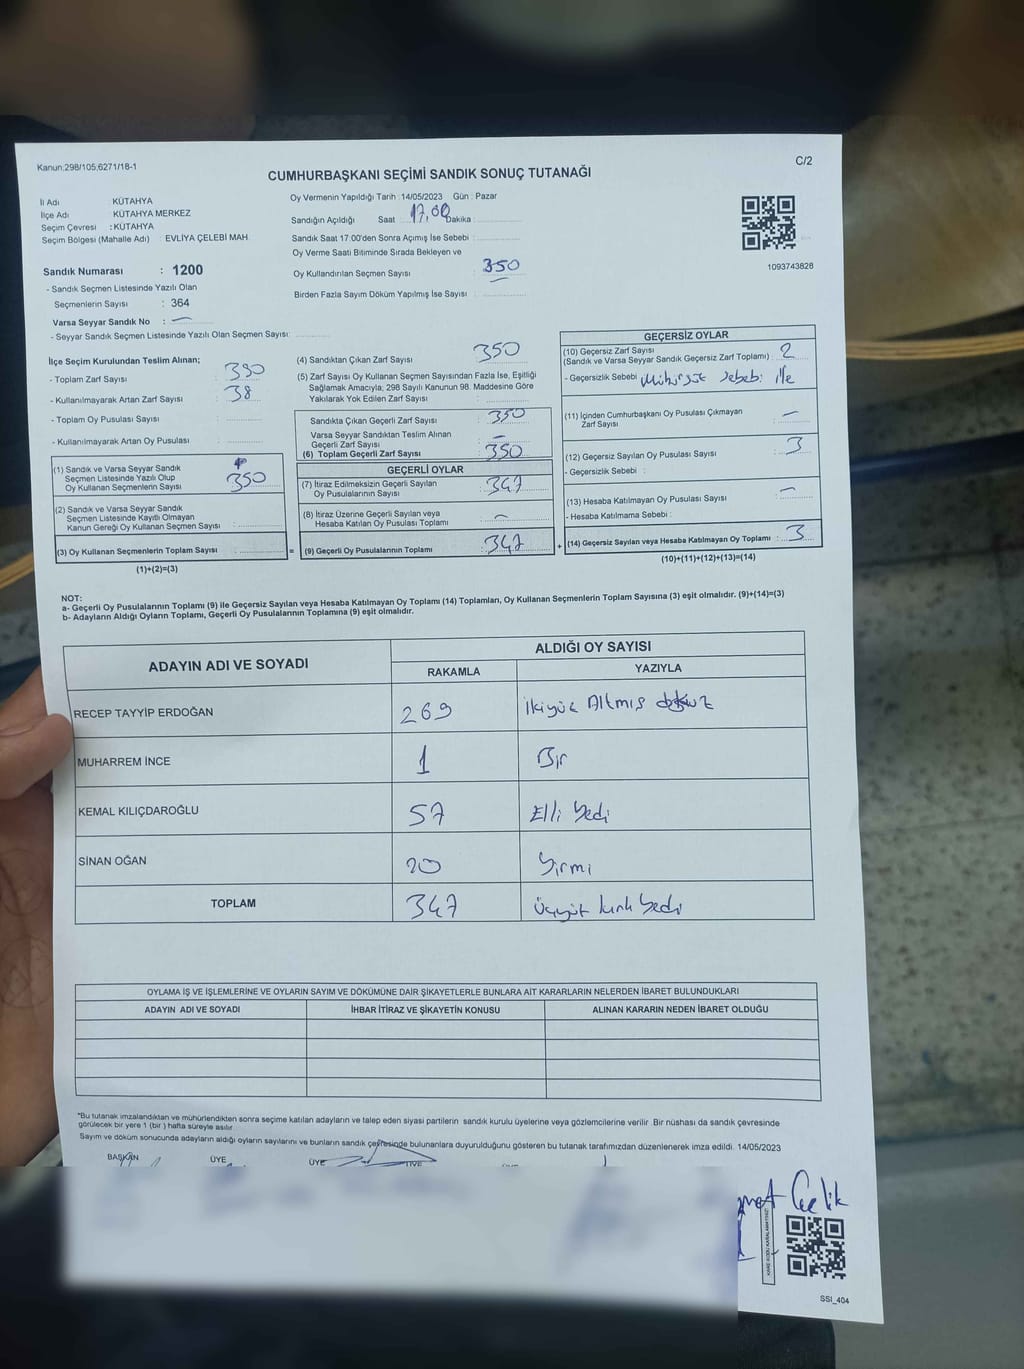 Kanun:298/105,6271/18-1
C/2
CUMHURBAŞKANI SEÇİMİ SANDIK SONUÇ TUTANAĞI
İl Adı : KÜTAHYA
İlçe Adı : KÜTAHYA MERKEZ
Seçim Çevresi : KÜTAHYA
Seçim Bölgesi (Mahalle Adı) : EVLİYA ÇELEBİ MAH.
Sandık Numarası : 1200
- Sandık Seçmen Listesinde Yazılı Olan
Seçmenlerin Sayısı : 364
Varsa Seyyar Sandık No : —
- Seyyar Sandık Seçmen Listesinde Yazılı Olan Seçmen Sayısı:
Oy Vermenin Yapıldığı Tarih :14/05/2023 Gün : Pazar
Sandığın Açıldığı Saat 17,00 Dakika :
Sandık Saat 17.00'den Sonra Açımış İse Sebebi :
Oy Verme Saati Bitiminde Sırada Bekleyen ve
Oy Kullandırılan Seçmen Sayısı 350
Birden Fazla Sayım Döküm Yapılmış İse Sayısı :
1093743828
İlçe Seçim Kurulundan Teslim Alınan;
- Toplam Zarf Sayısı : 390
- Kullanılmayarak Artan Zarf Sayısı : 38
- Toplam Oy Pusulası Sayısı :
- Kullanılmayarak Artan Oy Pusulası :
(1) Sandık ve Varsa Seyyar Sandık
Seçmen Listesinde Yazılı Olup
Oy Kullanan Seçmenlerin Sayısı : 350
(2) Sandık ve Varsa Seyyar Sandık
Seçmen Listesinde Kayıtlı Olmayan
Kanun Gereği Oy Kullanan Seçmen Sayısı :
(3) Oy Kullanan Seçmenlerin Toplam Sayısı :
(1)+(2)=(3)
=
(4) Sandıktan Çıkan Zarf Sayısı 350
(5) Zarf Sayısı Oy Kullanan Seçmen Sayısından Fazla İse, Eşitliği
Sağlamak Amacıyla; 298 Sayılı Kanunun 98. Maddesine Göre
Yakılarak Yok Edilen Zarf Sayısı :
Sandıkta Çıkan Geçerli Zarf Sayısı : 350
Varsa Seyyar Sandıktan Teslim Alınan
Geçerli Zarf Sayısı : —
(6) Toplam Geçerli Zarf Sayısı : 350
GEÇERLİ OYLAR
(7) İtiraz Edilmeksizin Geçerli Sayılan
Oy Pusulalarının Sayısı : 347
(8) İtiraz Üzerine Geçerli Sayılan veya
Hesaba Katılan Oy Pusulası Toplamı : —
(9) Geçerli Oy Pusulalarının Toplamı : 347
+
GEÇERSİZ OYLAR
(10) Geçersiz Zarf Sayısı
(Sandık ve Varsa Seyyar Sandık Geçersiz Zarf Toplamı) : 2
- Geçersizlik Sebebi sebebi ile
(11) İçinden Cumhurbaşkanı Oy Pusulası Çıkmayan
Zarf Sayısı : —
(12) Geçersiz Sayılan Oy Pusulası Sayısı : 3
- Geçersizlik Sebebi :
(13) Hesaba Katılmayan Oy Pusulası Sayısı : —
- Hesaba Katılmama Sebebi :
(14) Geçersiz Sayılan veya Hesaba Katılmayan Oy Toplamı : 3
(10)+(11)+(12)+(13)=(14)
NOT:
a- Geçerli Oy Pusulalarının Toplamı (9) ile Geçersiz Sayılan veya Hesaba Katılmayan Oy Toplamı (14) Toplamları, Oy Kullanan Seçmenlerin Toplam Sayısına (3) eşit olmalıdır. (9)+(14)=(3)
b- Adayların Aldığı Oyların Toplamı, Geçerli Oy Pusulalarının Toplamına (9) eşit olmalıdır.
ADAYIN ADI VE SOYADI
ALDIĞI OY SAYISI
RAKAMLA YAZIYLA
RECEP TAYYİP ERDOĞAN 269 İkiyüz Altmış dokuz
MUHARREM İNCE 1 Bir
KEMAL KILIÇDAROĞLU 57 Elli Yedi
SİNAN OĞAN 20 Yirmi
TOPLAM 347 Üçyüz kırk Yedi
OYLAMA İŞ VE İŞLEMLERİNE VE OYLARIN SAYIM VE DÖKÜMÜNE DAİR ŞİKAYETLERLE BUNLARA AİT KARARLARIN NELERDEN İBARET BULUNDUKLARI
ADAYIN ADI VE SOYADI İHBAR İTİRAZ VE ŞİKAYETİN KONUSU ALINAN KARARIN NEDEN İBARET OLDUĞU
*Bu tutanak imzalandıktan ve mühürlendikten sonra seçime katılan adayların ve talep eden siyasi partilerin sandık kurulu üyelerine veya gözlemcilerine verilir. Bir nüshası da sandık çevresinde
görülecek bir yere 1 (bir ) hafta süreyle asılır.
Sayım ve döküm sonucunda adayların aldığı oyların sayılarını ve bunların sandık çevresinde bulunanlara duyurulduğunu gösteren bu tutanak tarafımızdan düzenlenerek imza edildi. 14/05/2023
BAŞKAN ÜYE ÜYE ÜYE
Çelik
SSI_404